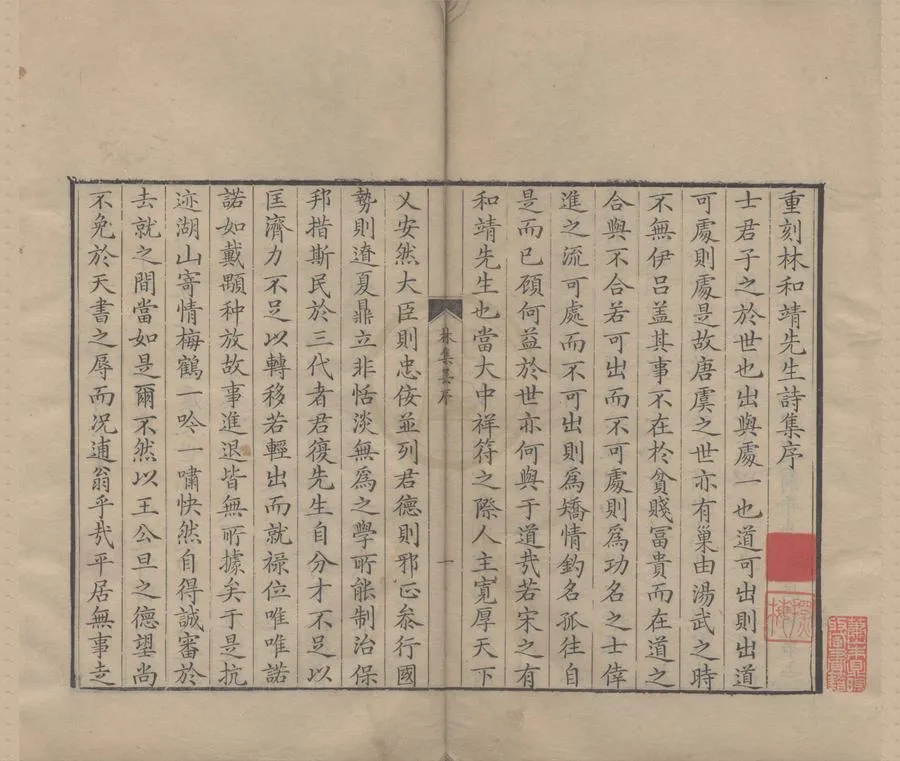 重刻林和靖先生詩集序
士君子之於世也出與處一也道可出則出道
可處則處是故唐虞之世亦有巢由湯武之時
不無伊呂盖其事不在於貧賤冨貴而在道之
合與不合若可出而不可處則爲功名之士倖
進之流可處而不可出則爲矯情釣名孤往自
是而已顧何益於世亦何與于道㢤若宋之有
和靖先生也當大中祥符之際人主寛厚天下
林集 序
一
乂安然大臣則忠佞並列君德則邪正叅行國
勢則遼夏鼎立非恬淡無爲之學所能制治保
邦措斯民於三代者君復先生自分才不足以
匡濟力不足以轉移若輕出而就禄位唯唯諾
諾如戴顒种放故事進退皆無所據矣于是抗
迹湖山寄情梅鶴一吟一嘯快然自得誠審於
去就之間當如是爾不然以王公旦之德望尚
不免於天書之辱而况逋翁乎㢤平居無事㐀